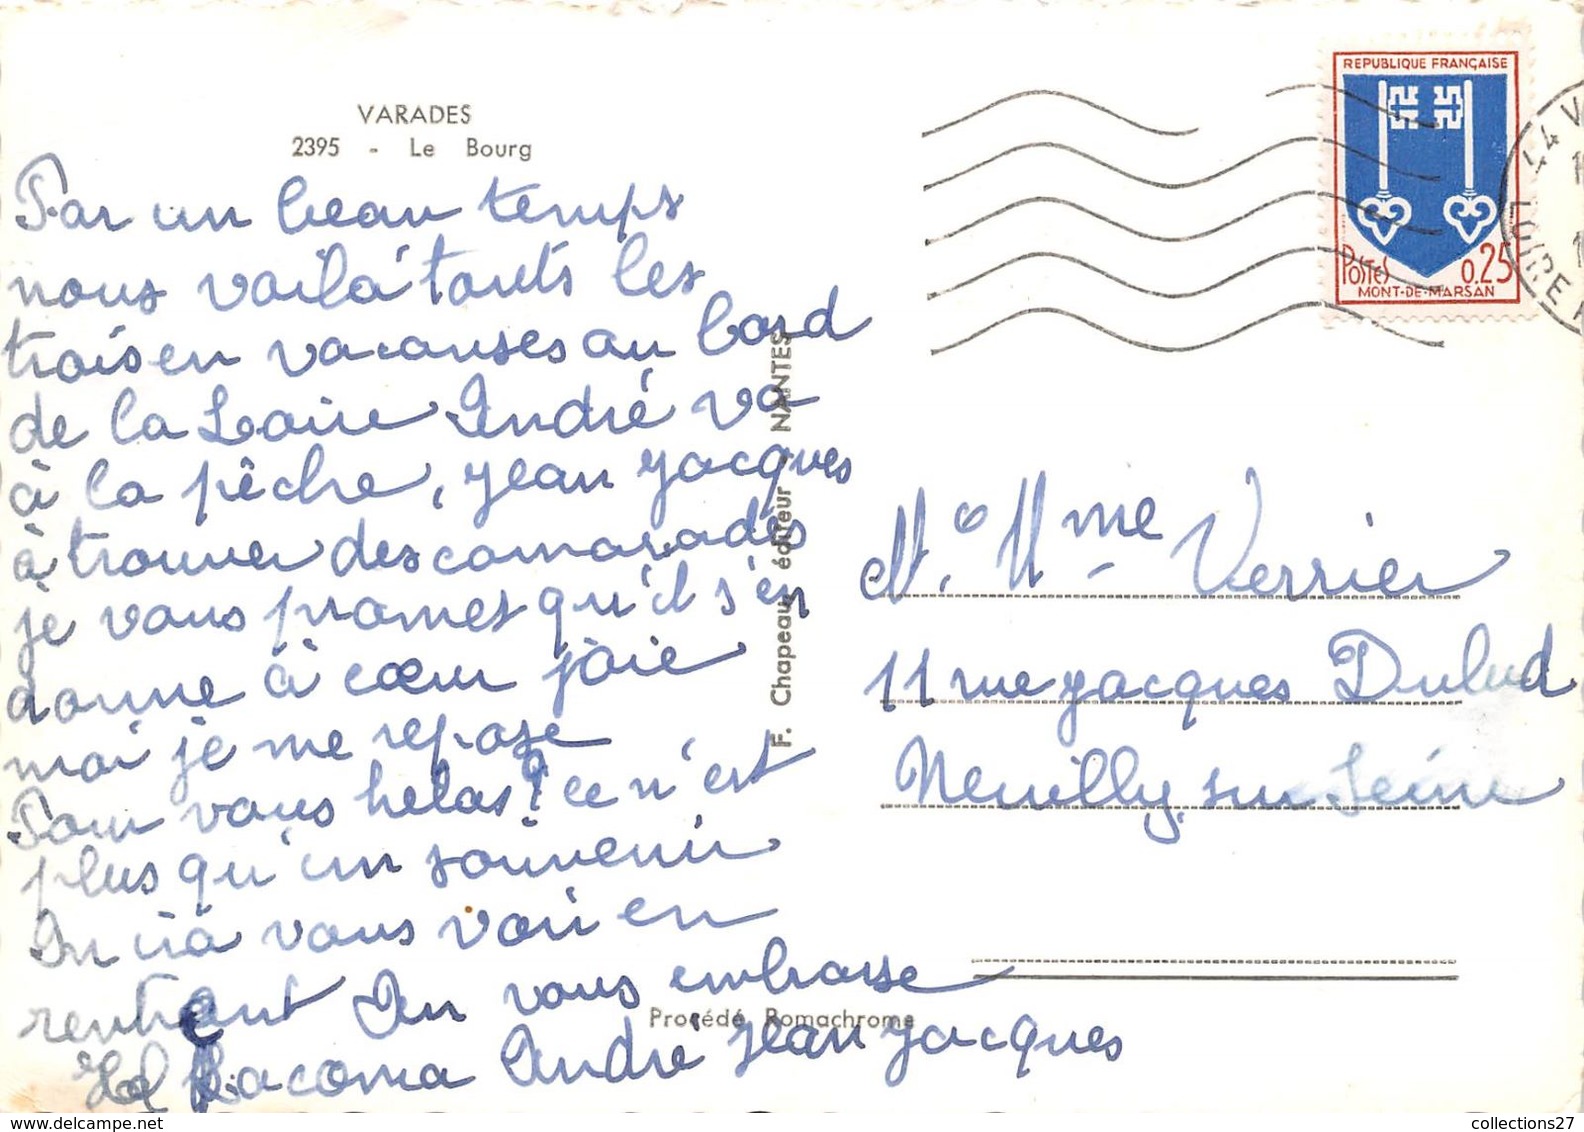 VARADES
2395 - Le Bourg
Par un beau temps
nous voila touts les
trois en vacanses au bord
de la Loire André va
à la pêche, Jean Jacques
à trouver des camarades
je vous promet qu'il s'en
donne à cœur joie
moi je me repose
Pour vous helas! ce n'est
plus qu'un souvenir
On ira vous voir en
rentrent On vous embrasse
Lacoma André Jean Jacques
F. Chapeau éditeur - NANTES
Procédé Romachrome
REPUBLIQUE FRANÇAISE
POSTES 0,25
MONT-DE-MARSAN
44 V
LOIRE A
M. & Mme Verrier
11 rue Jacques Dulud
Neuilly sur Seine
collections27